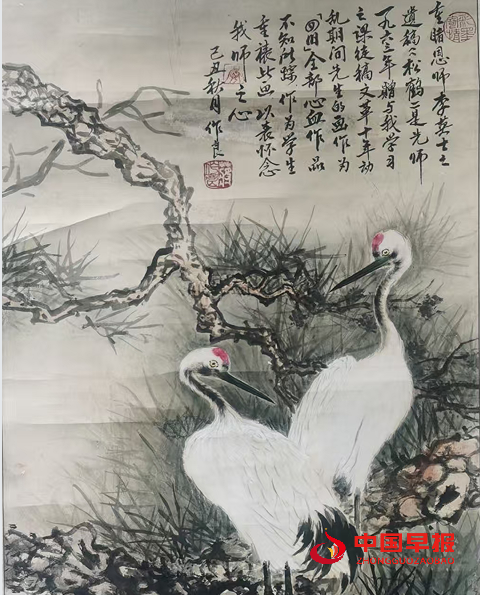 重睹恩师李英士之
遗鹤《松鹤》是先师
一九六三年赠与我学习
之课徒稿文革十年动
乱期间先生的画作为
「四旧」全部心血作品
不知所踪作为学生
重裱此画以表怀念
我师之心
己丑秋月作良
中国早报